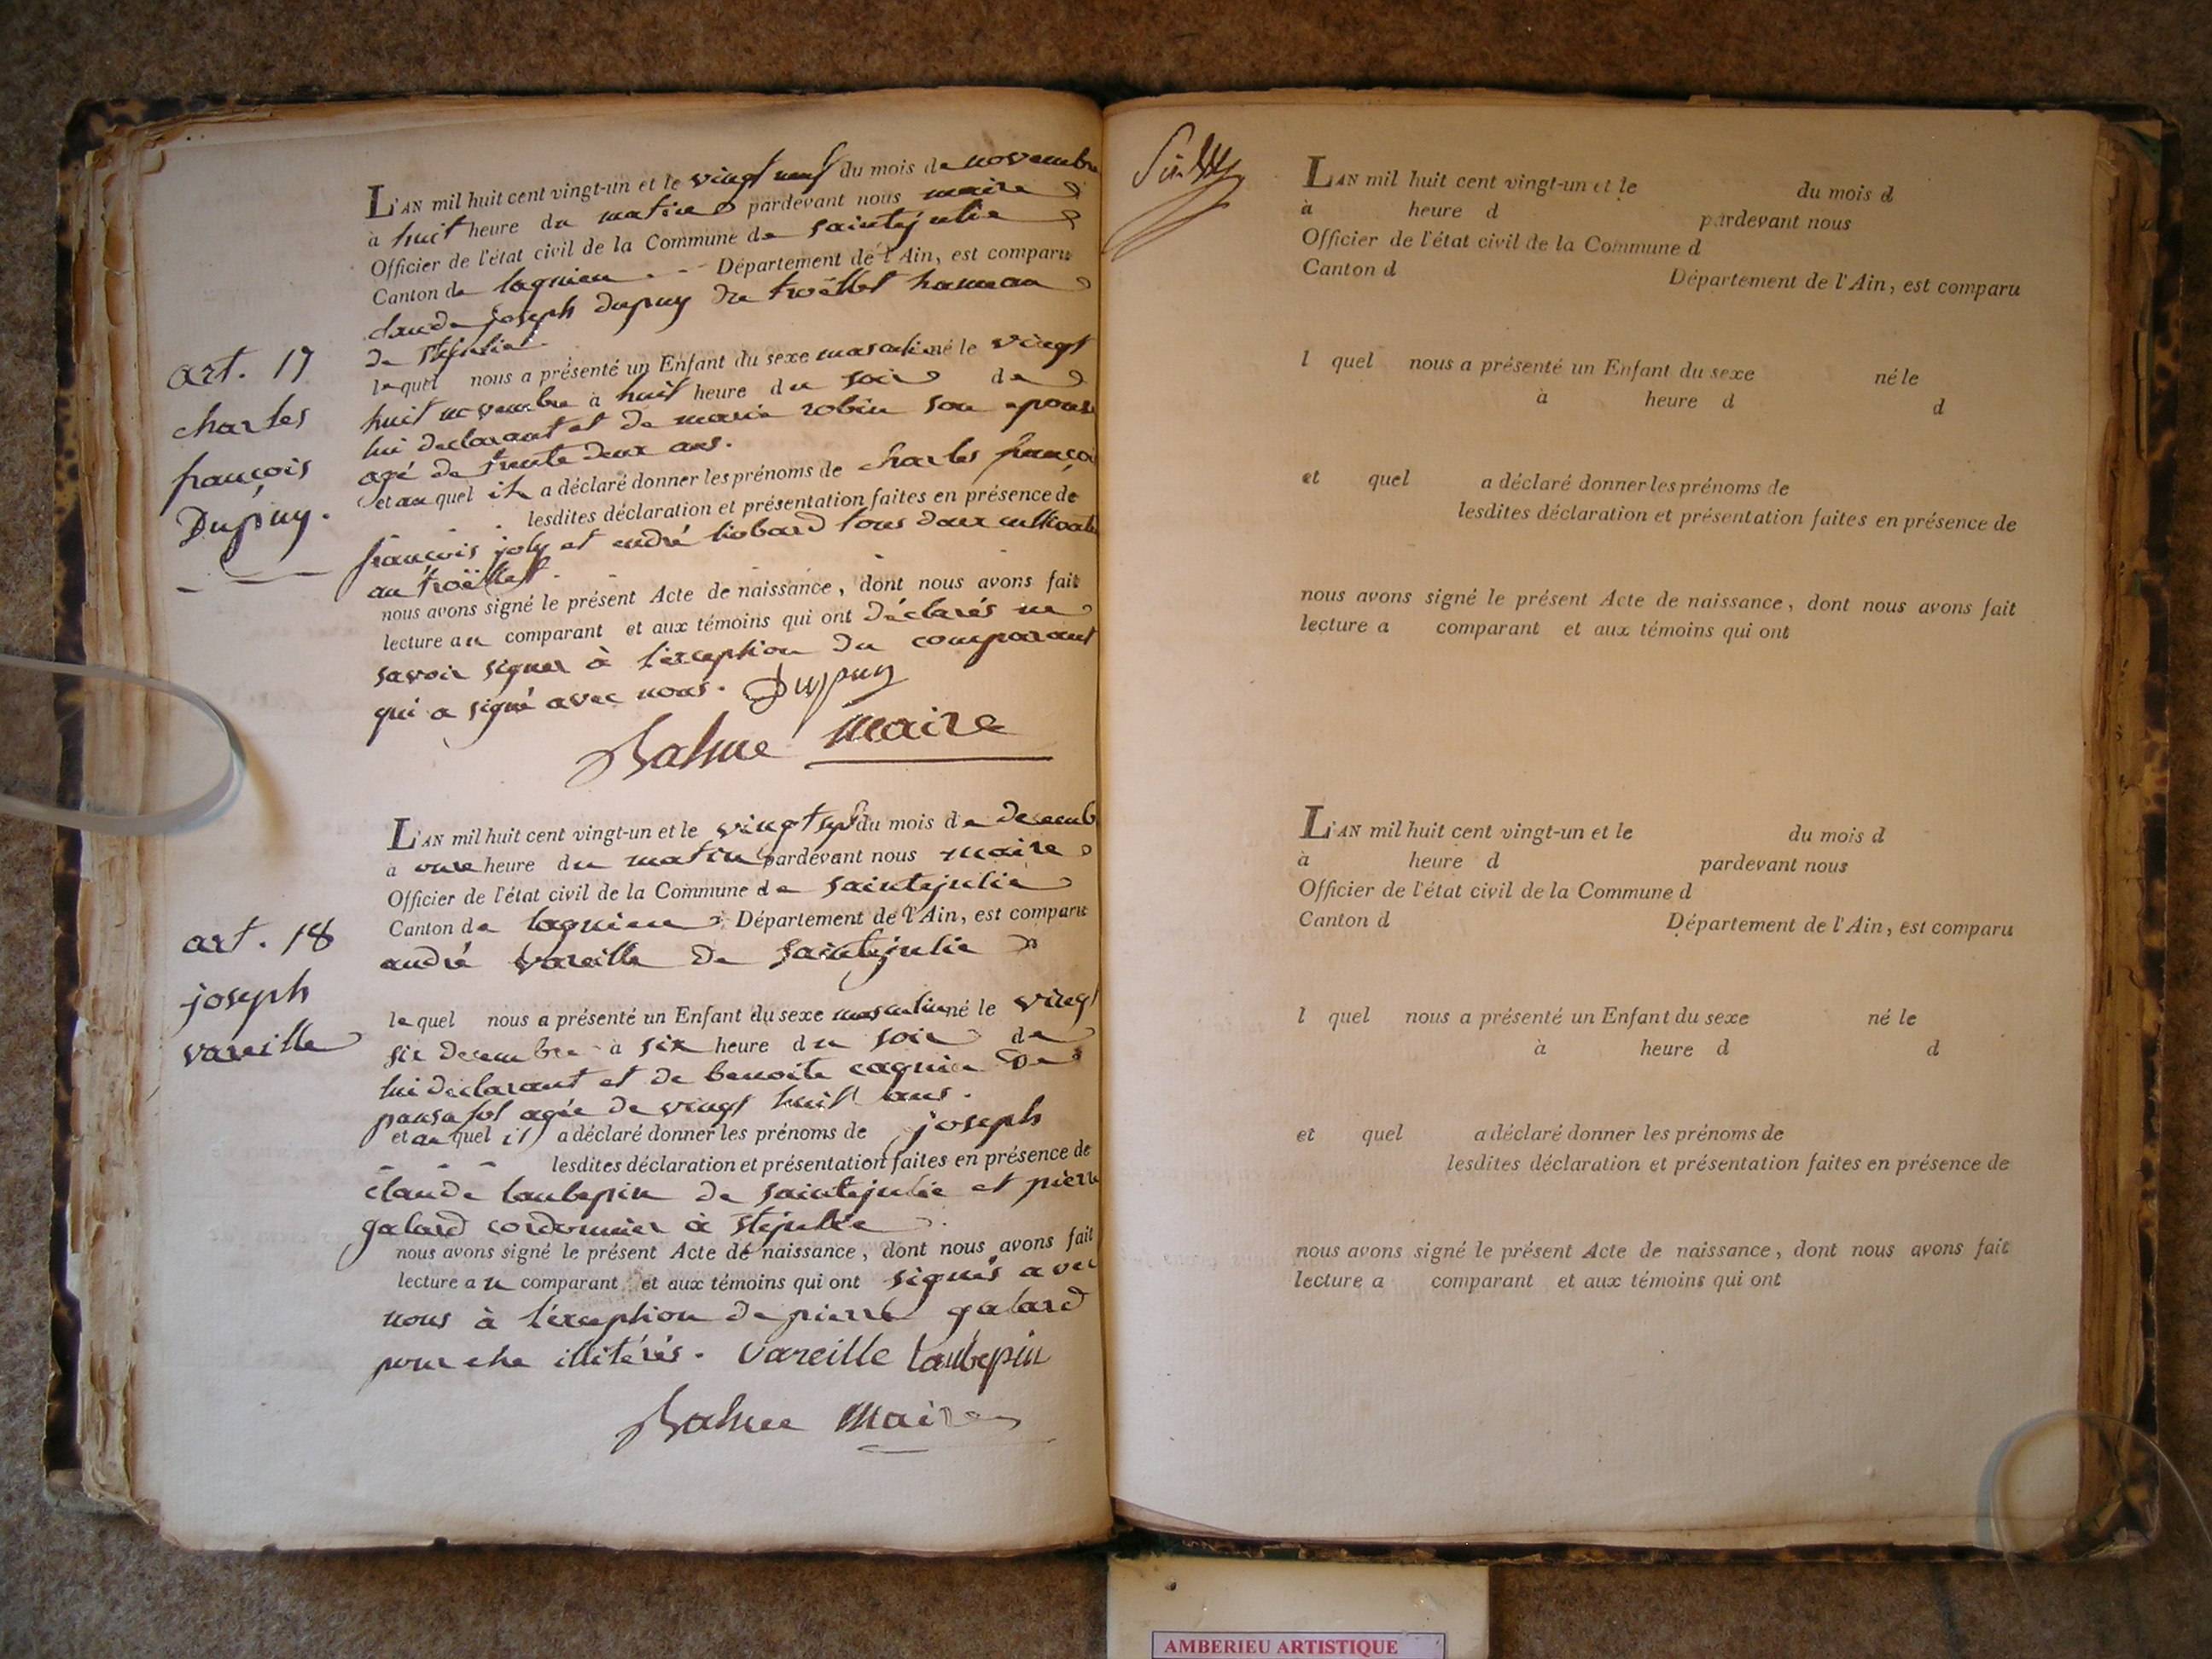 L'AN mil huit cent vingt-un et le vingt neuf du mois de novembre
à huit heure du matin pardevant nous maire
Officier de l'état civil de la Commune de saintejulie
Canton de lagnieu - - Département de l'Ain, est comparu
claude joseph dupuy du troëllet hameau
de stejulie.
lequel nous a présenté un Enfant du sexe masculin né le vingt
huit novembre à huit heure du soir de
lui declarant et de marie robin son epouse
agé de trente deux ans.
et au quel il a déclaré donner les prénoms de charles françois
lesdites déclaration et présentation faites en présence de
françois joly et endré liobard tous deux
au troëllet.
nous avons signé le présent Acte de naissance, dont nous avons fait
lecture au comparant et aux témoins qui ont déclarés ne
savoir signer à l'exception du comparant
qui a signé avec nous. Dupuy
Balme maire
art. 17
charles
françois
Dupuy.
L'AN mil huit cent vingt-un et le vingt sept du mois de decemb
à onze heure du matin pardevant nous maire
Officier de l'état civil de la Commune de saintejulie
Canton de lagnieu Département de l'Ain, est comparu
andré vareille de saintejulie
lequel nous a présenté un Enfant du sexe masculin né le vingt
six decembre à six heure du soir de
lui declarant et de benoite cagnin De
agée de vingt huit ans.
et au quel il a déclaré donner les prénoms de joseph
- - - lesdites déclaration et présentation faites en présence de
claude laubepin de saintejulie et pierre
galard cordonnier à stejulie.
nous avons signé le présent Acte de naissance, dont nous avons fait
lecture au comparant et aux témoins qui ont signés avec
nous à l'exception de pierre galard
pour etre illitérés. Vareille Laubepin
Balme Maire
art. 18
joseph
vareille
L'AN mil huit cent vingt-un et le du mois d
à heure d pardevant nous
Officier de l'état civil de la Commune d
Canton d Département de l'Ain, est comparu
l quel nous a présenté un Enfant du sexe né le
à heure d d
et quel a déclaré donner les prénoms de
lesdites déclaration et présentation faites en présence de
nous avons signé le présent Acte de naissance, dont nous avons fait
lecture a comparant et aux témoins qui ont
L'AN mil huit cent vingt-un et le du mois d
à heure d pardevant nous
Officier de l'état civil de la Commune d
Canton d Département de l'Ain, est comparu
l quel nous a présenté un Enfant du sexe né le
à heure d d
et quel a déclaré donner les prénoms de
lesdites déclaration et présentation faites en présence de
nous avons signé le présent Acte de naissance, dont nous avons fait
lecture a comparant et aux témoins qui ont
AMBERIEU ARTISTIQUE